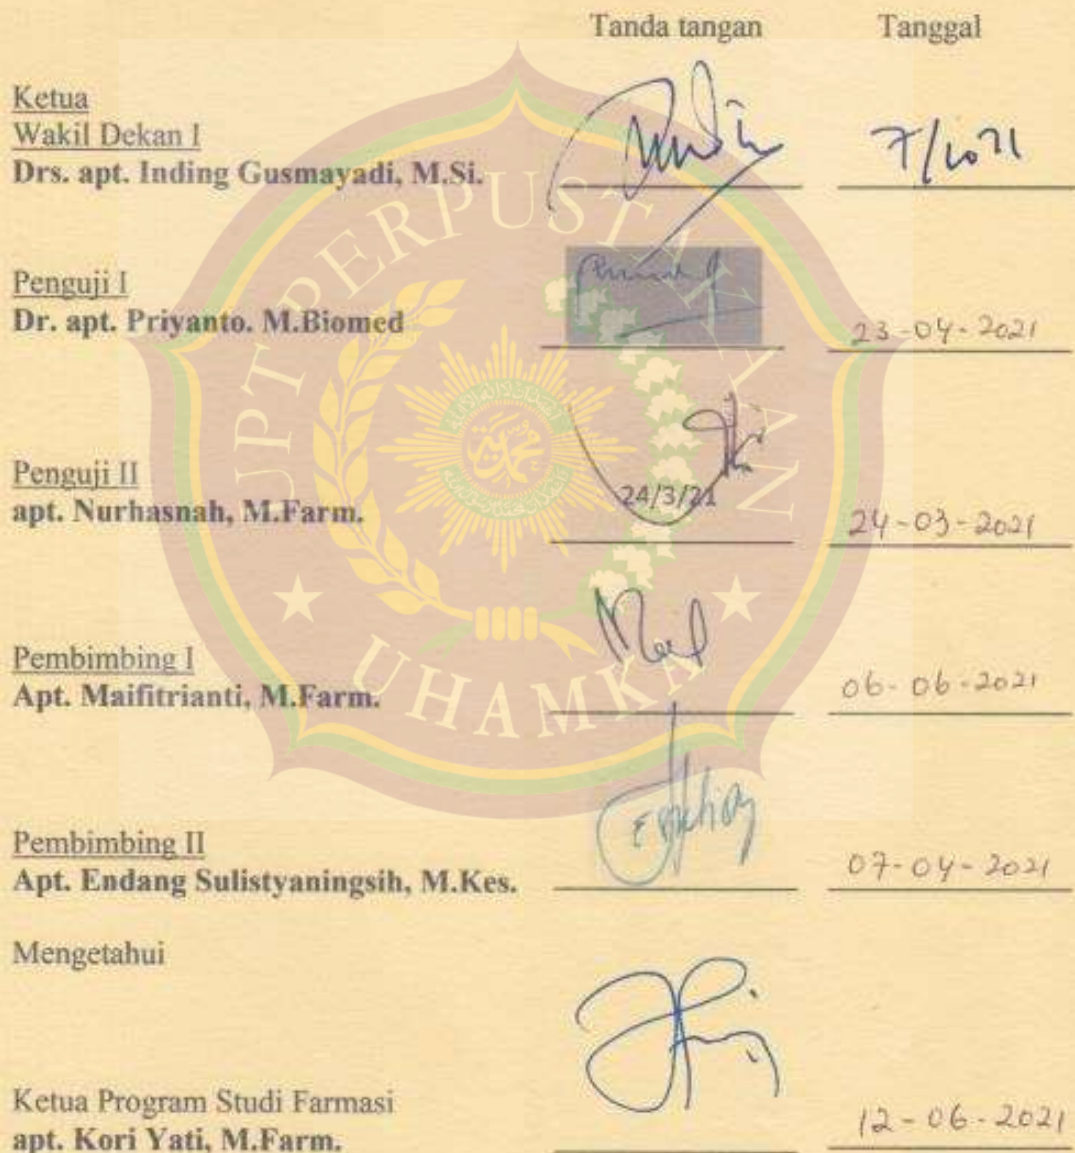 Tanda tangan Tanggal
Ketua
Wakil Dekan I
Drs. apt. Inding Gusmayadi, M.Si.
Penguji I
Dr. apt. Priyanto. M.Biomed
23-04-2021
Penguji II
apt. Nurhasnah, M.Farm.
24/3/21
24-03-2021
Pembimbing I
Apt. Maifitrianti, M.Farm.
06-06-2021
Pembimbing II
Apt. Endang Sulistyaningsih, M.Kes.
07-04-2021
Mengetahui
Ketua Program Studi Farmasi
apt. Kori Yati, M.Farm.
12-06-2021
UPT PERPUSTAKAAN
UHAMKA